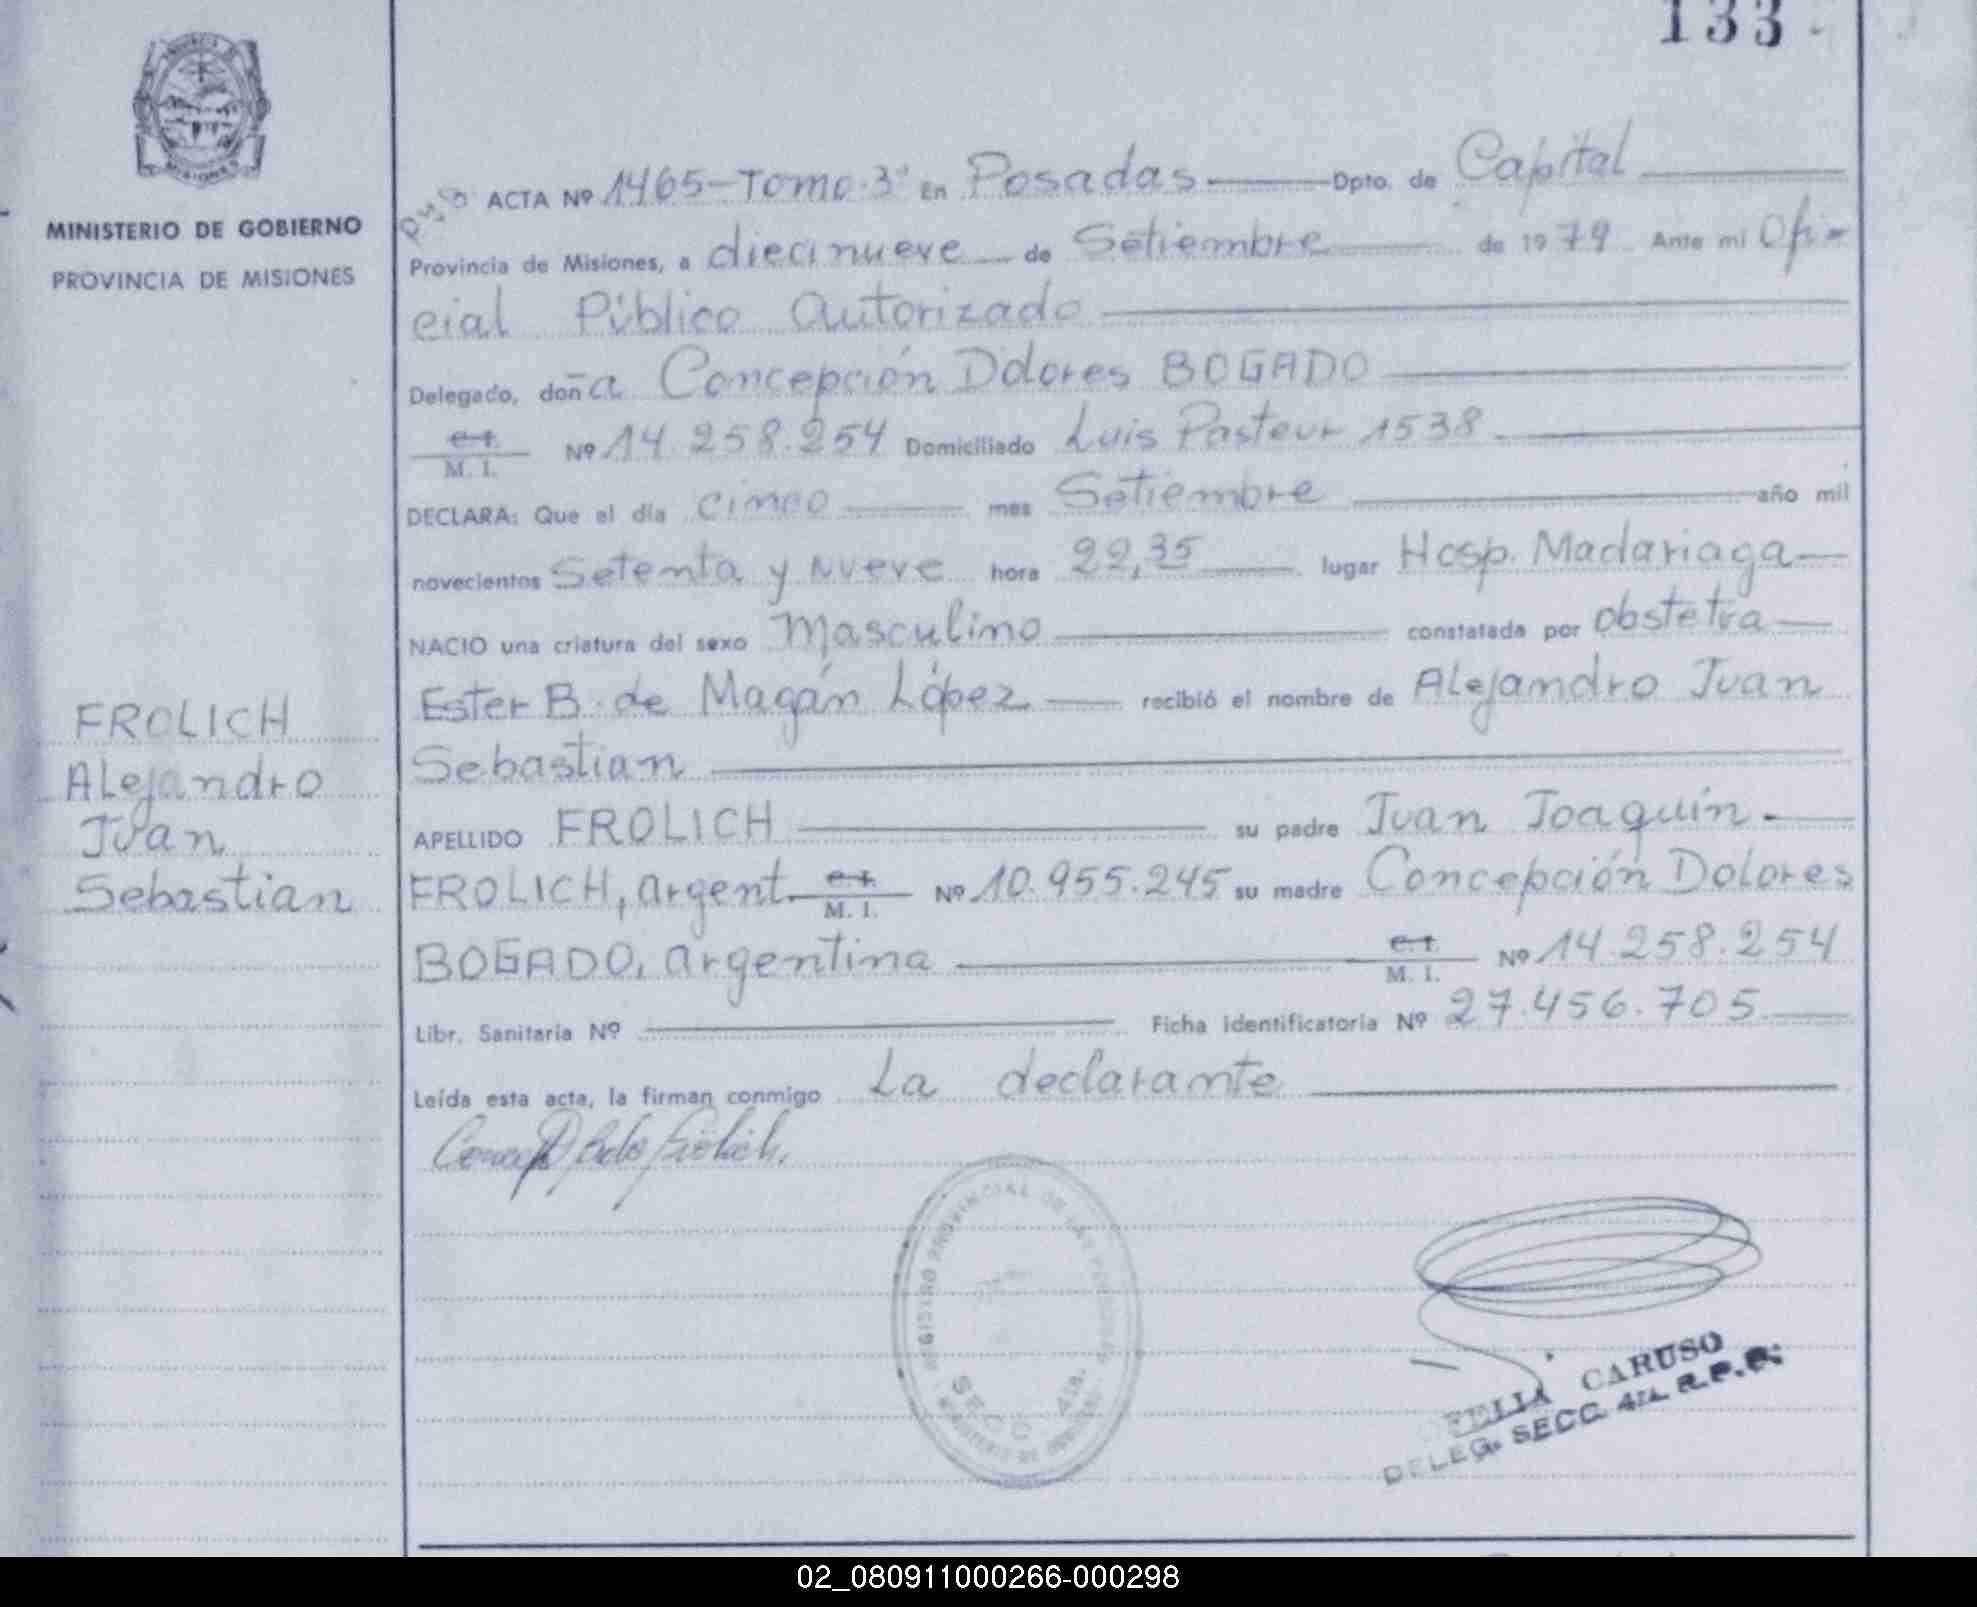 133
MINISTERIO DE GOBIERNO
PROVINCIA DE MISIONES
ACTA Nº 1465-Tomo-3º En Posadas Dpto. de Capital
Provincia de Misiones, a diecinueve de Setiembre de 1979 Ante mi Ofi-
cial Público Autorizado
Delegado, doña Concepción Dolores BOGADO
C.I.
M. I. Nº 14.258.254 Domiciliado Luis Pasteur 1538
DECLARA: Que el día cinco mes Setiembre año mil
novecientos Setenta y Nueve hora 22,35 lugar Hosp. Madariaga
NACIO una criatura del sexo Masculino constatada por Obstetra
Ester B. de Magán López recibió el nombre de Alejandro Juan
Sebastian
APELLIDO FROLICH su padre Juan Joaquín
FROLICH, argent. C.I.
M. I. Nº 10.955.245 su madre Concepción Dolores
BOGADO, argentina C.I.
M. I. Nº 14.258.254
Libr. Sanitaria Nº Ficha identificatoria Nº 27.456.705
Leída esta acta, la firman conmigo La declarante
FROLICH
Alejandro
Juan
Sebastian
REGISTRO PROVINCIAL DE LAS PERSONAS
SECC. 4ta.
CARUSO
DELEG. SECC. 4ta. R.P.P.
02_080911000266-000298